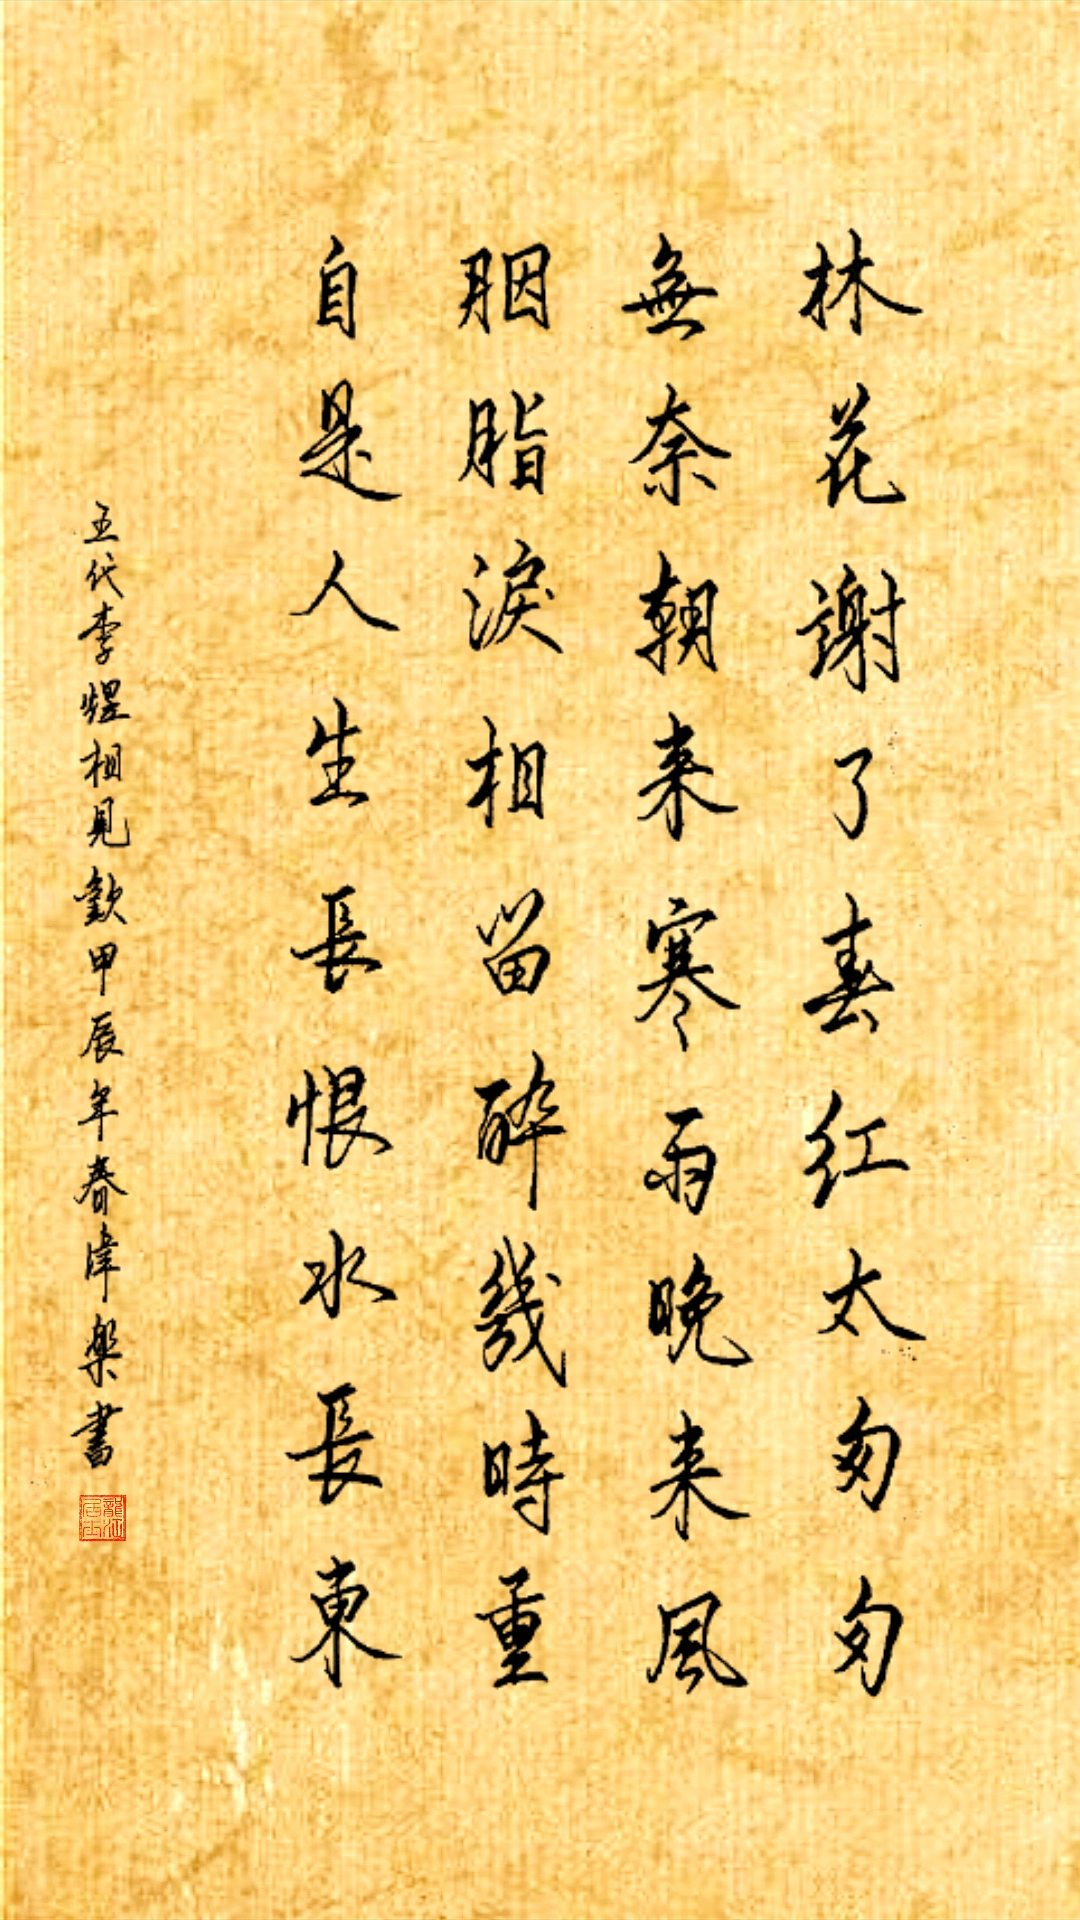 林花謝了春红太匆匆
無奈朝来寒雨晚来風
胭脂淚相留醉幾時重
自是人生長恨水長東
五代李煜相見歡甲辰年春偉樂書
龍江居士